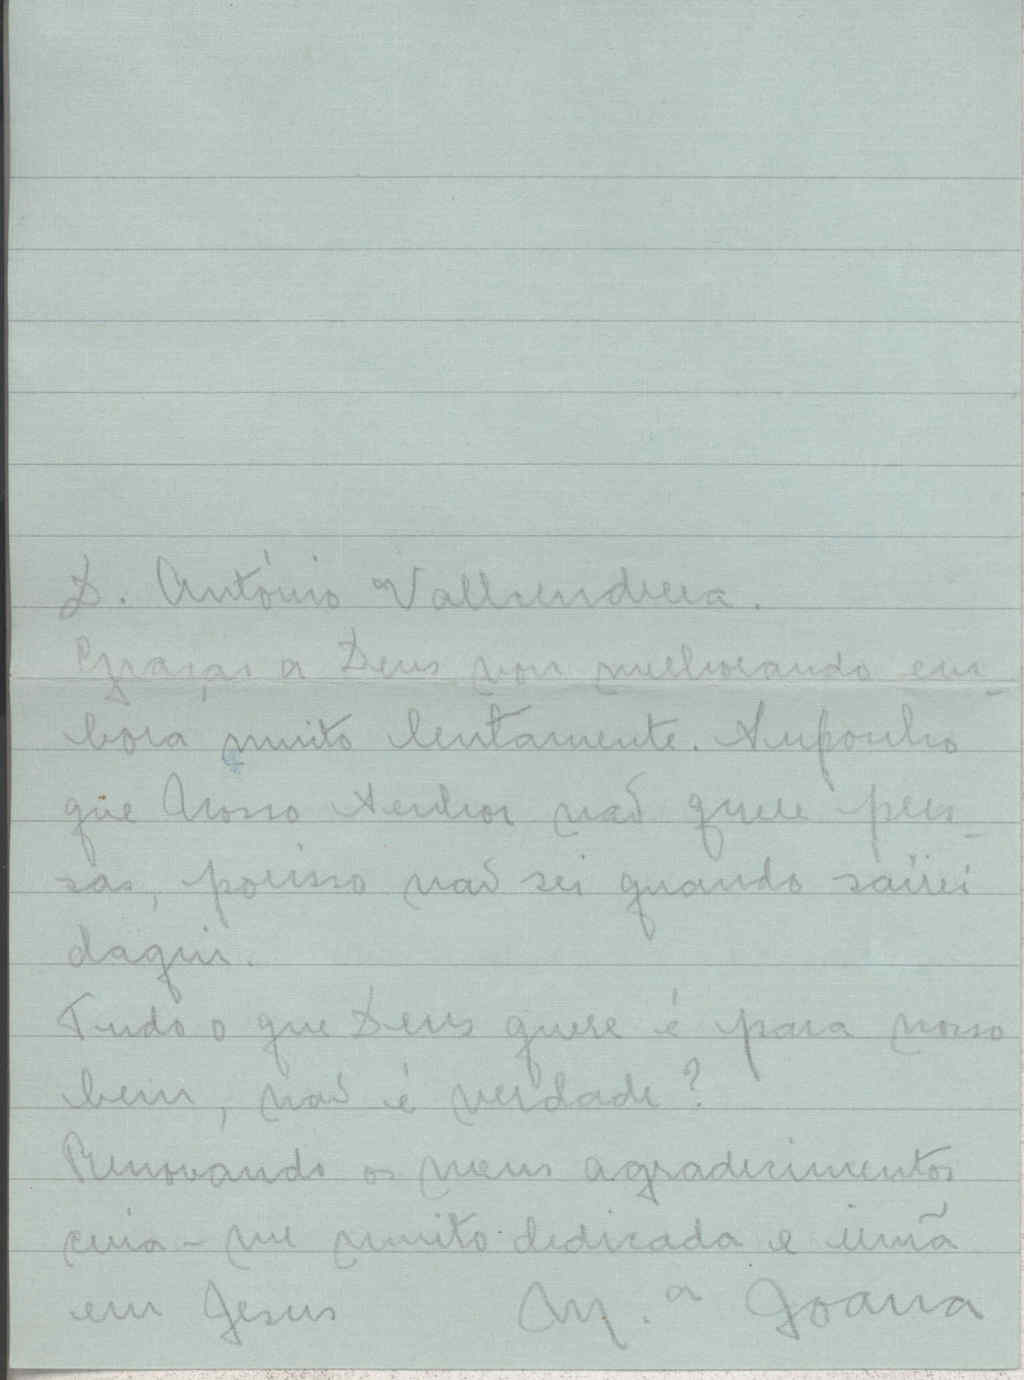 D. António Valhendrera.
Graças a Deus vou melhorando em-
bora muito lentamente. Suponho
que Nosso Senhor não quere pres-
sas, porisso não sei quando sairei
daqui.
Tudo o que Deus quere é para nosso
bem, não é verdade?
Renovando os meus agradecimentos
creia-me muito dedicada e irmã
em Jesus M.ª Joana